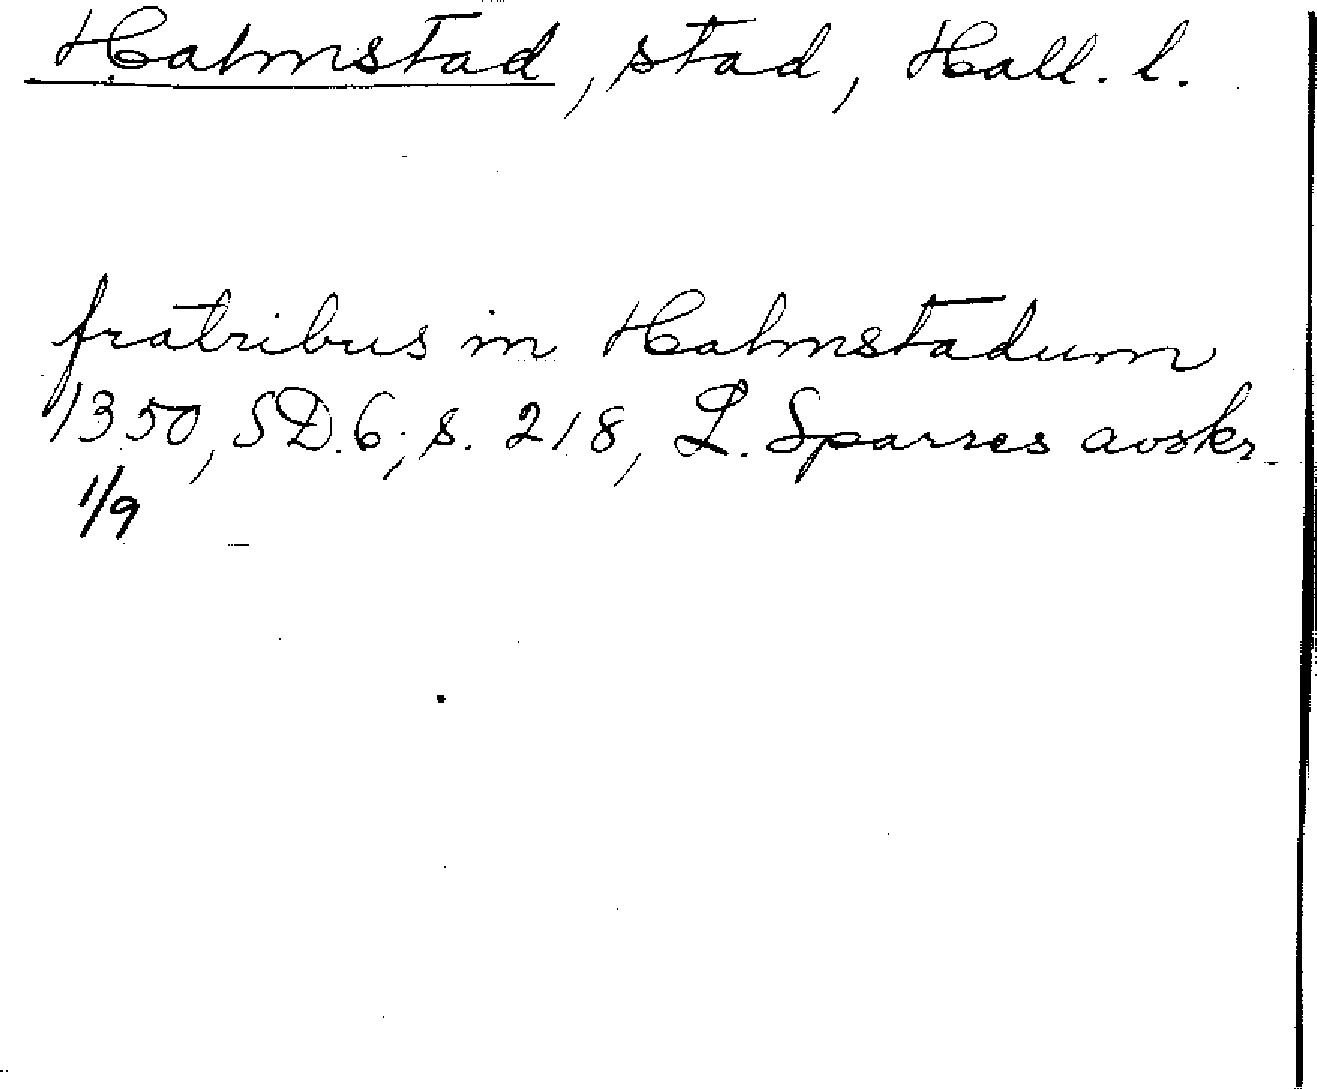 Halmstad, stad, Hall. l.
fratribus in Halmstadum
1350, SD. 6, s. 218, L. Sparres avskr.
1/9